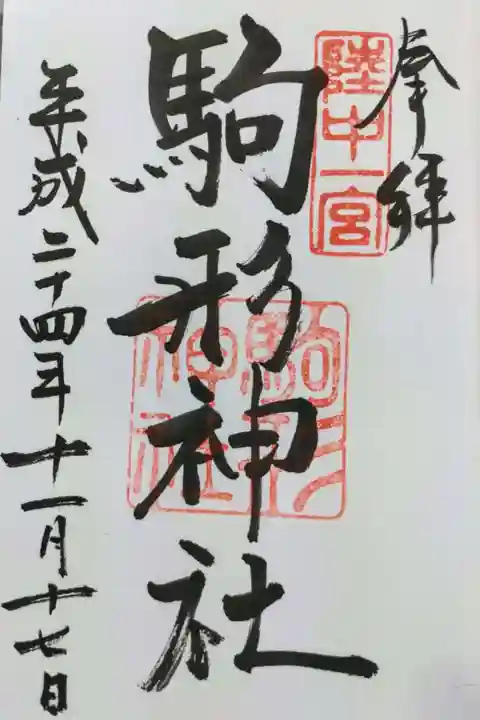 奉拝
陸中一宮
駒形神社
駒形神社
平成二十四年十一月十七日